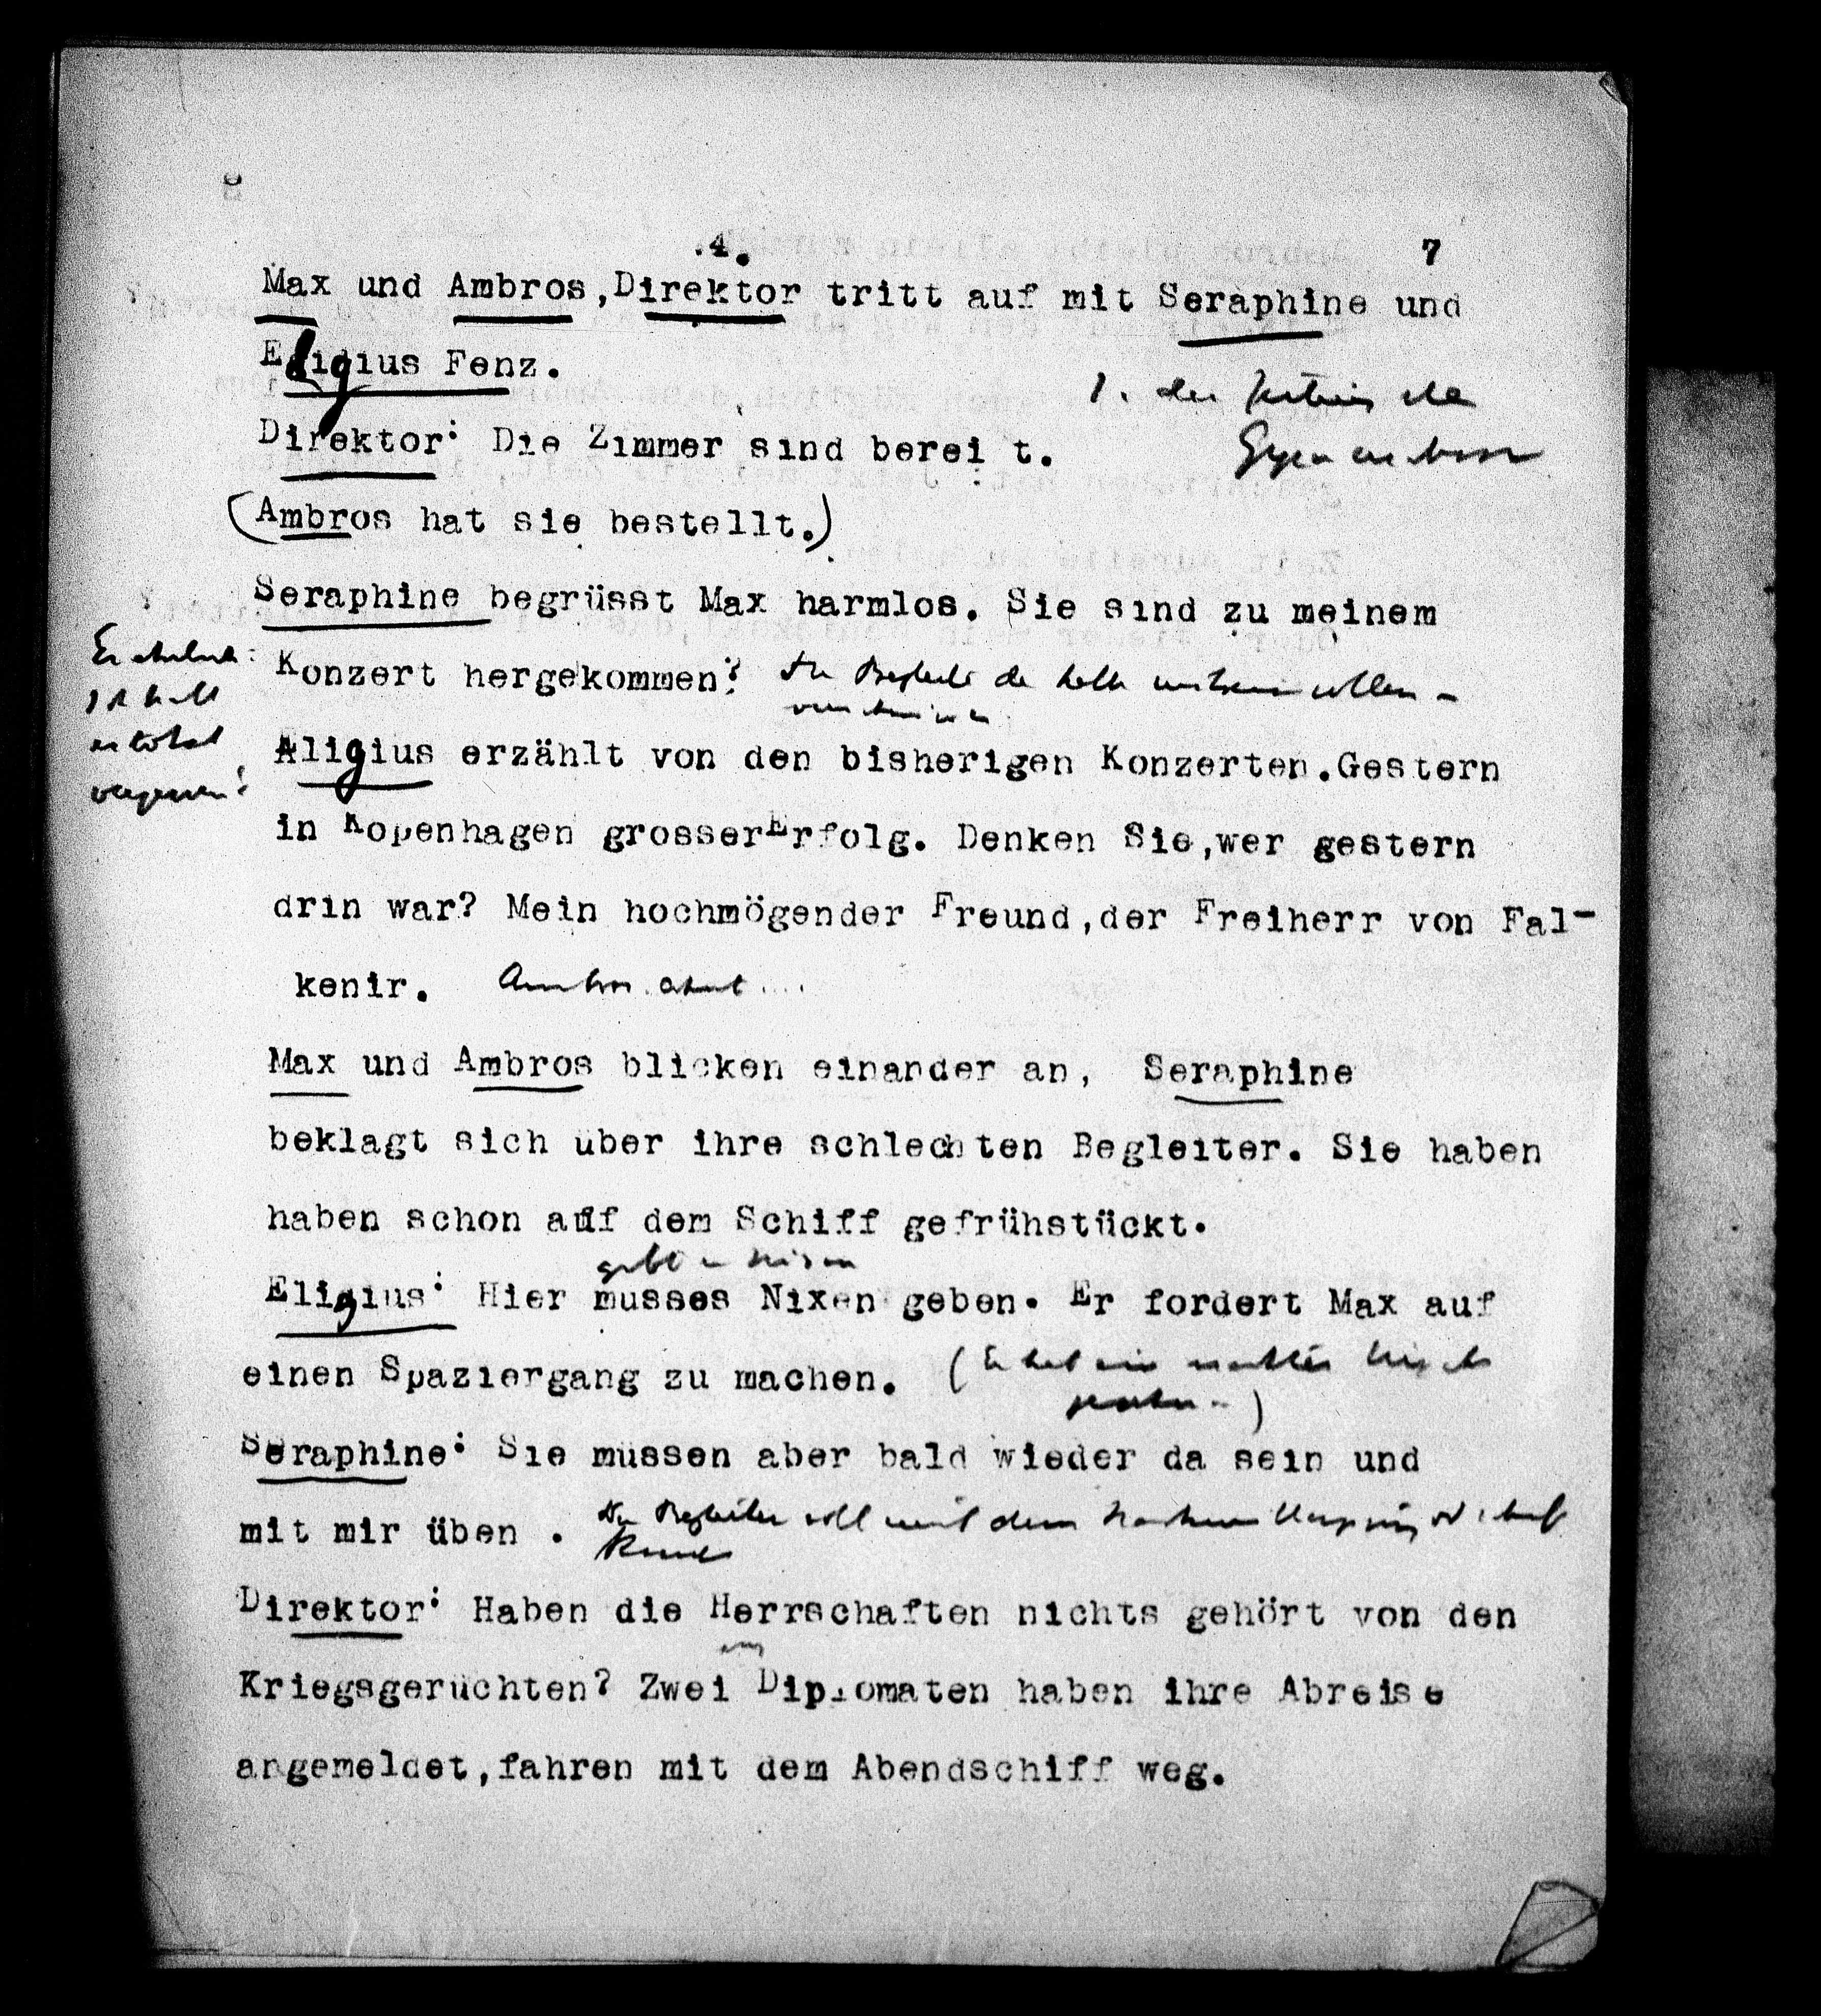 .4.
7
Max und Ambros,Direktor tritt auf mit Seraphine und
Eligius Fenz.
Direktor: Die Zimmer sind berei t.
(Ambros hat sie bestellt.)
Seraphine begrüsst Max harmlos. Sie sind zu meinem
Konzert hergekommen?
Aligius erzählt von den bisherigen Konzerten.Gestern
in Kopenhagen grosserErfolg. Denken Sie,wer gestern
drin war? Mein hochmögender Freund,der Freiherr von Fal-
kenir. Ambros ahnt ...
Max und Ambros blicken einander an, Seraphine
beklagt sich über ihre schlechten Begleiter. Sie haben
haben schon auf dem Schiff gefrühstückt.
Eligius: Hier musses Nixen geben. Er fordert Max auf
einen Spaziergang zu machen.
Seraphine: Sie müssen aber bald wieder da sein und
mit mir üben . Der Begleiter soll mit dem
Direktor: Haben die Herrschaften nichts gehört von den
Kriegsgerüchten? Zwei Diplomaten haben ihre Abreise
angemeldet,fahren mit dem Abendschiff weg.